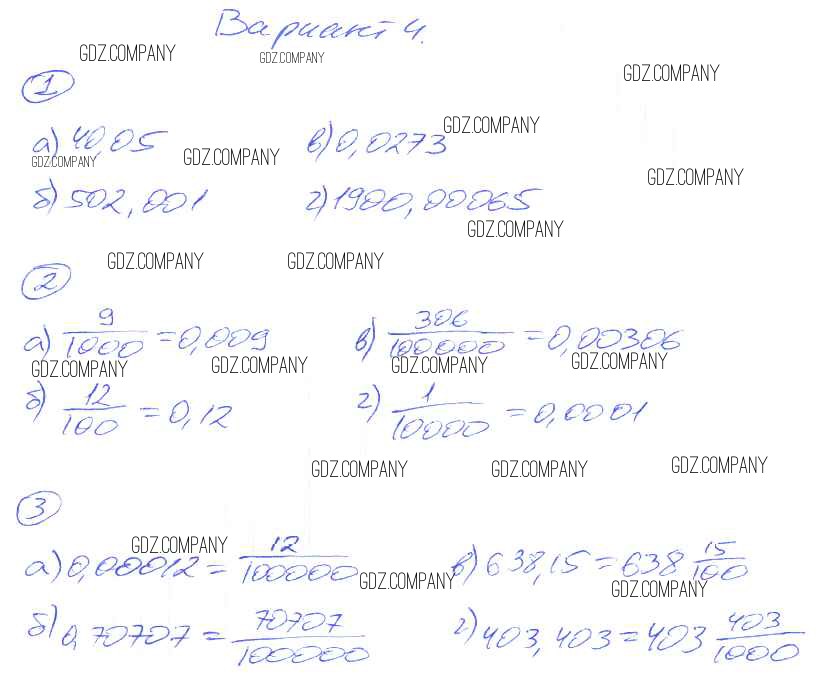 Вариант 4.
GDZ.COMPANY GDZ.COMPANY GDZ.COMPANY
1
а) 40,05 в) 0,0273 GDZ.COMPANY
GDZ.COMPANY GDZ.COMPANY GDZ.COMPANY
б) 502,001 г) 1900,00065
GDZ.COMPANY
GDZ.COMPANY GDZ.COMPANY
2
а) 9/1000 = 0,009 в) 306/100000 = 0,00306
GDZ.COMPANY GDZ.COMPANY GDZ.COMPANY GDZ.COMPANY
б) 12/100 = 0,12 г) 1/10000 = 0,0001
GDZ.COMPANY GDZ.COMPANY GDZ.COMPANY
3
GDZ.COMPANY
а) 0,00012 = 12/100000 в) 638,15 = 638 15/100
GDZ.COMPANY GDZ.COMPANY
б) 0,70707 = 70707/100000 г) 403,403 = 403 403/1000